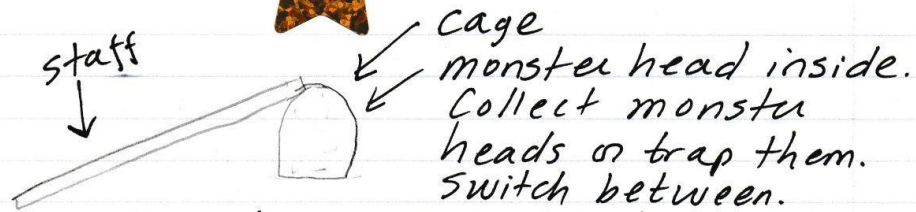 staff
cage
monster head inside.
Collect monster
heads or trap them.
Switch between.